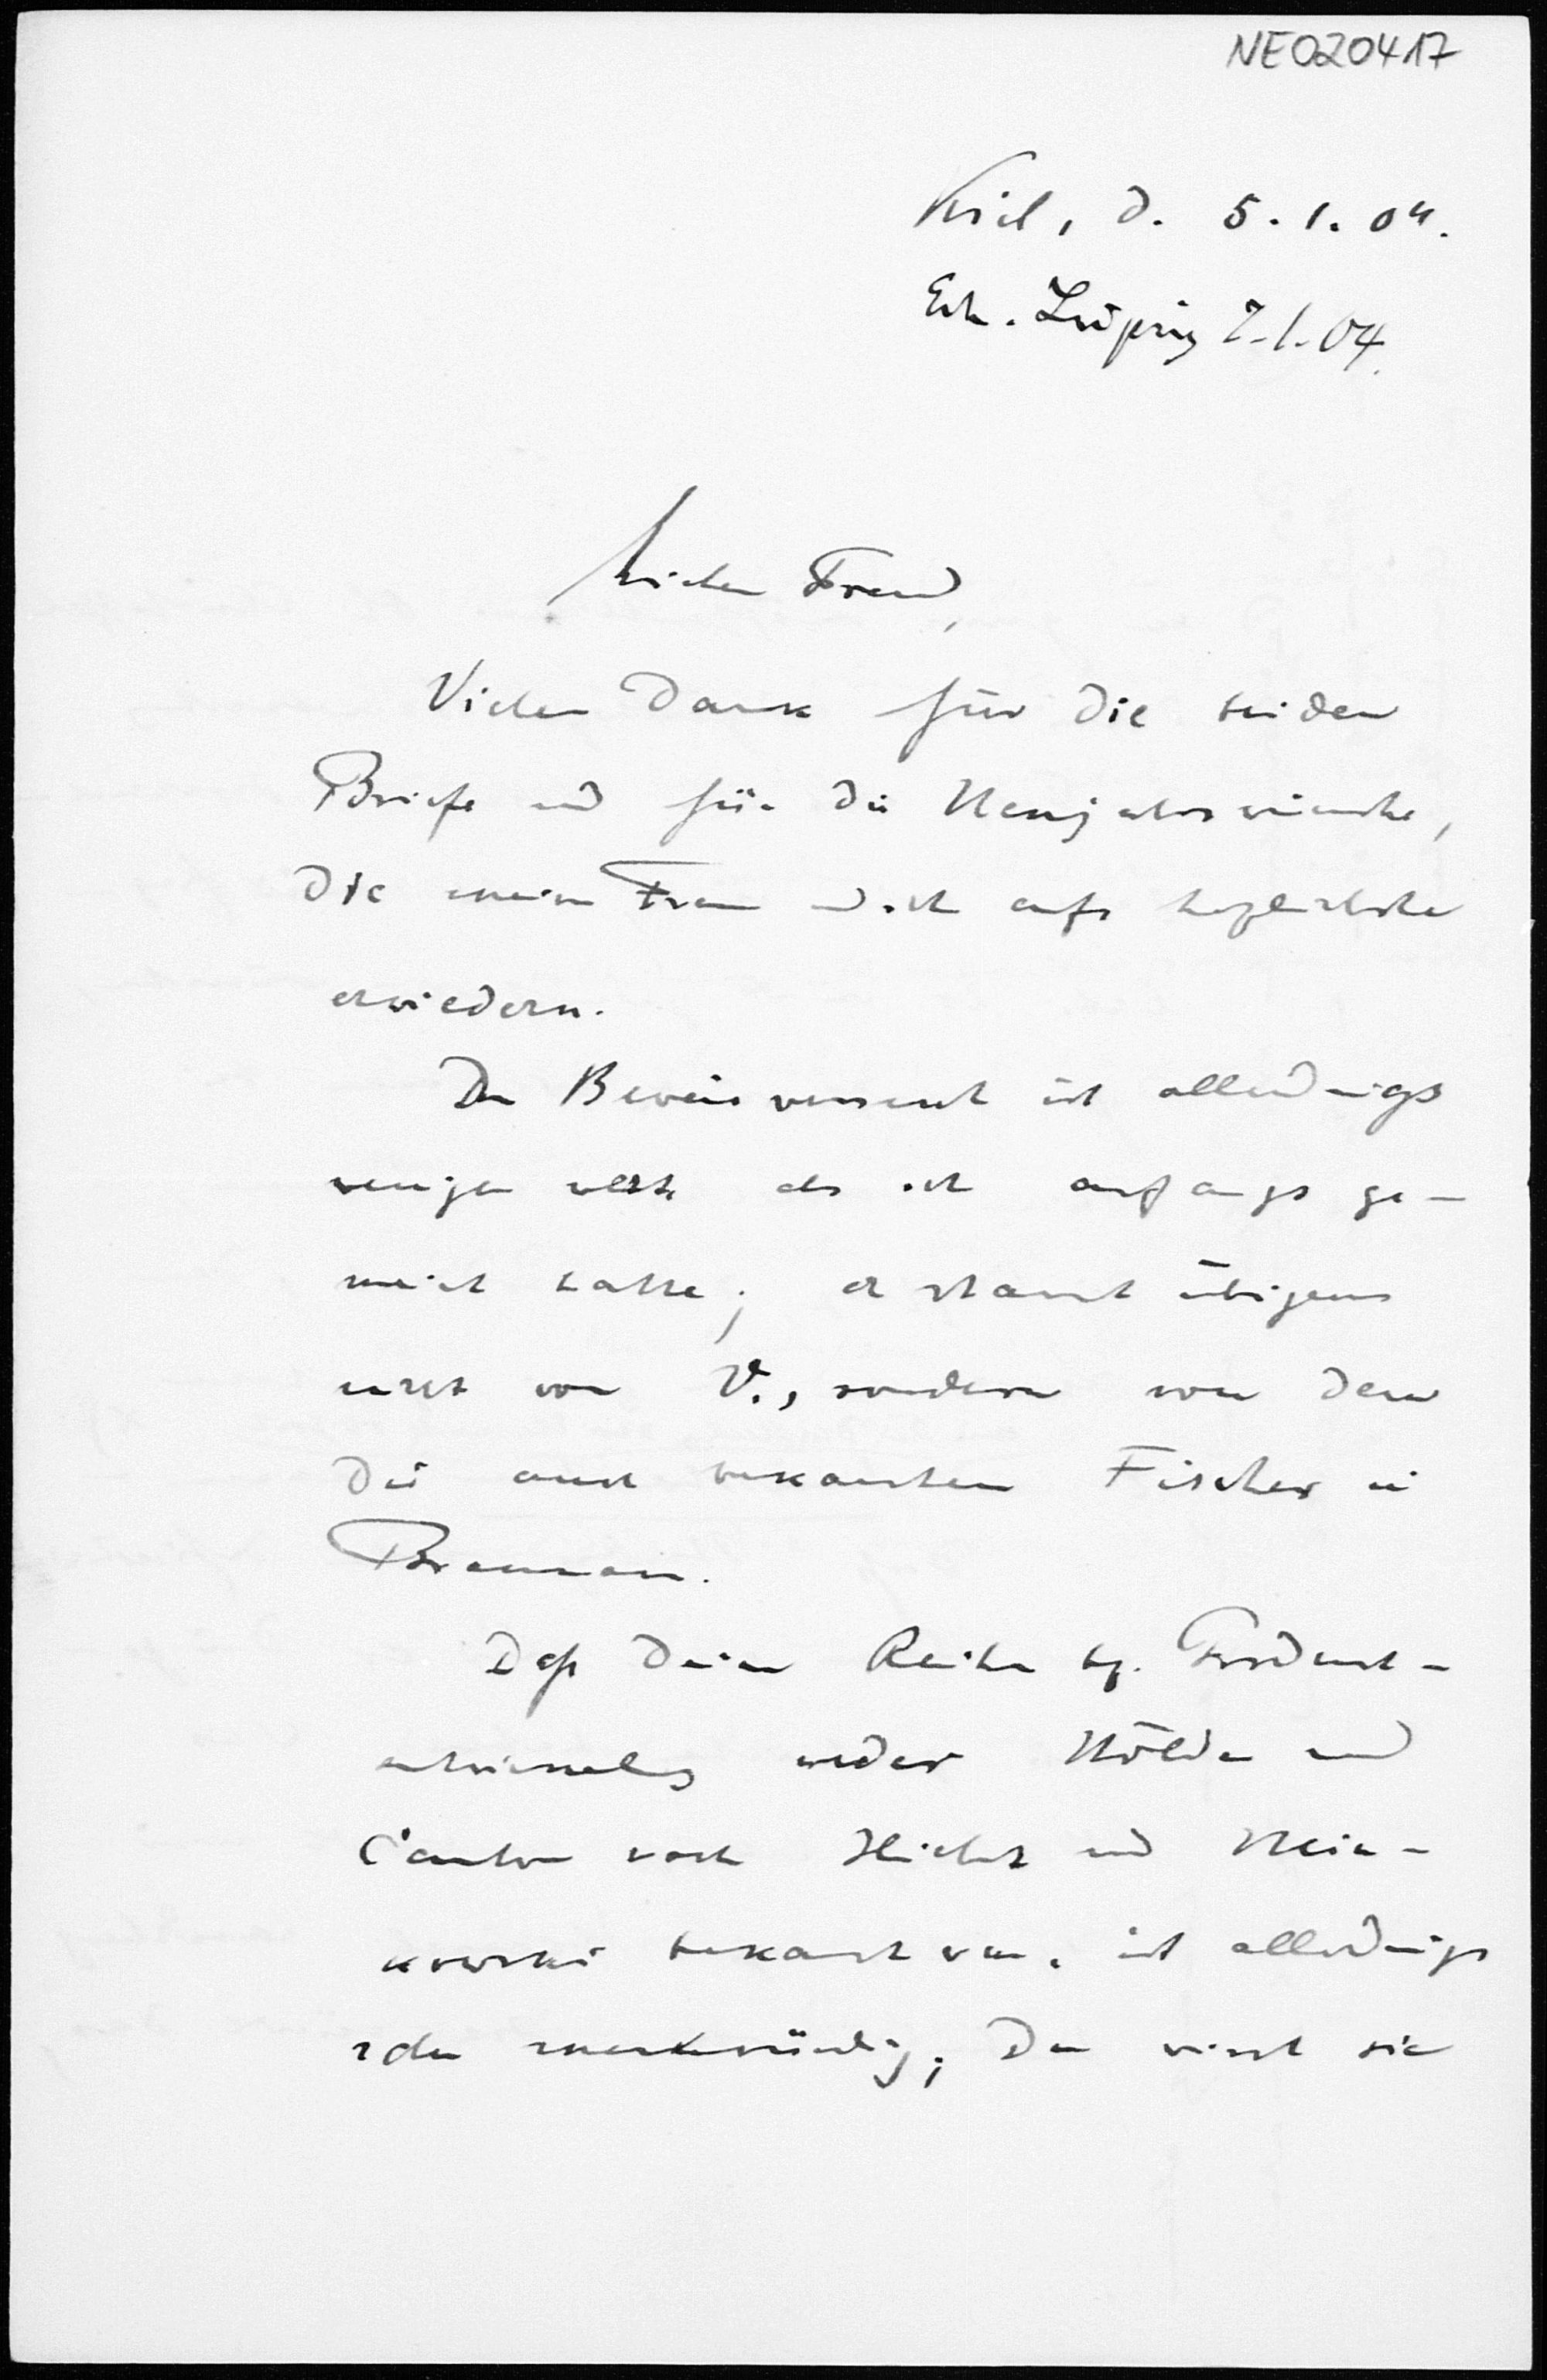 NE020417
Kiel, d. 5.1.04.
Erh. Leipzig 7.1.04.
Lieber Freund,
Vielen Dank für die beiden
Briefe und für die Neujahrswünsche,
die meine Frau und ich aufs herzlichste
erwiedern.
Der Beweisversuch ist allerdings
weniger werth als ich anfangs ge-
meint hatte; er stammt übrigens
nicht von V., sondern von dem
Dir auch bekannten Fischer in
Daß Deine Reihe
weder Hölder und
Cantor noch Hilbert und Min-
kowski bekannt war, ist allerdings
sehr merkwürdig; Du wirst sie